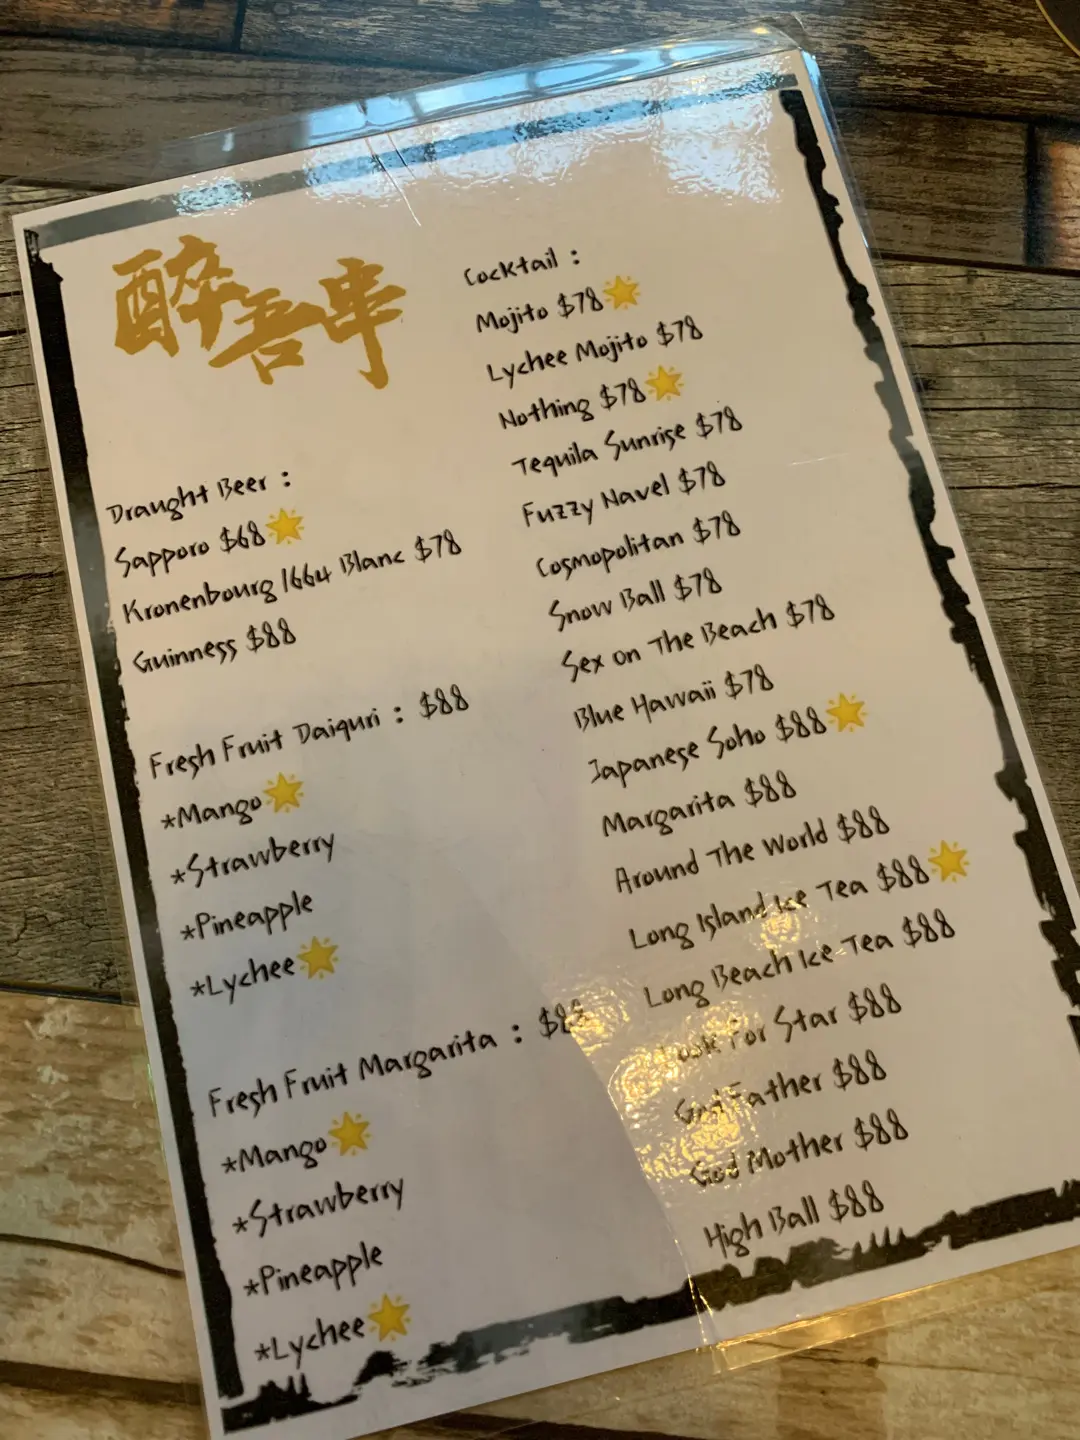 醉吾串
Draught Beer :
Sapporo $68
Kronenbourg 1664 Blanc $78
Guinness $88
Fresh Fruit Daiquri : $88
*Mango
*Strawberry
*Pineapple
*Lychee
Fresh Fruit Margarita : $88
*Mango
*Strawberry
*Pineapple
*Lychee
Cocktail :
Mojito $78
Lychee Mojito $78
Nothing $78
Tequila Sunrise $78
Fuzzy Navel $78
Cosmopolitan $78
Snow Ball $78
Sex on The Beach $78
Blue Hawaii $78
Japanese Soho $88
Margarita $88
Around The World $88
Long Island Ice Tea $88
Long Beach Ice Tea $88
Look For Star $88
God Father $88
God Mother $88
High Ball $88